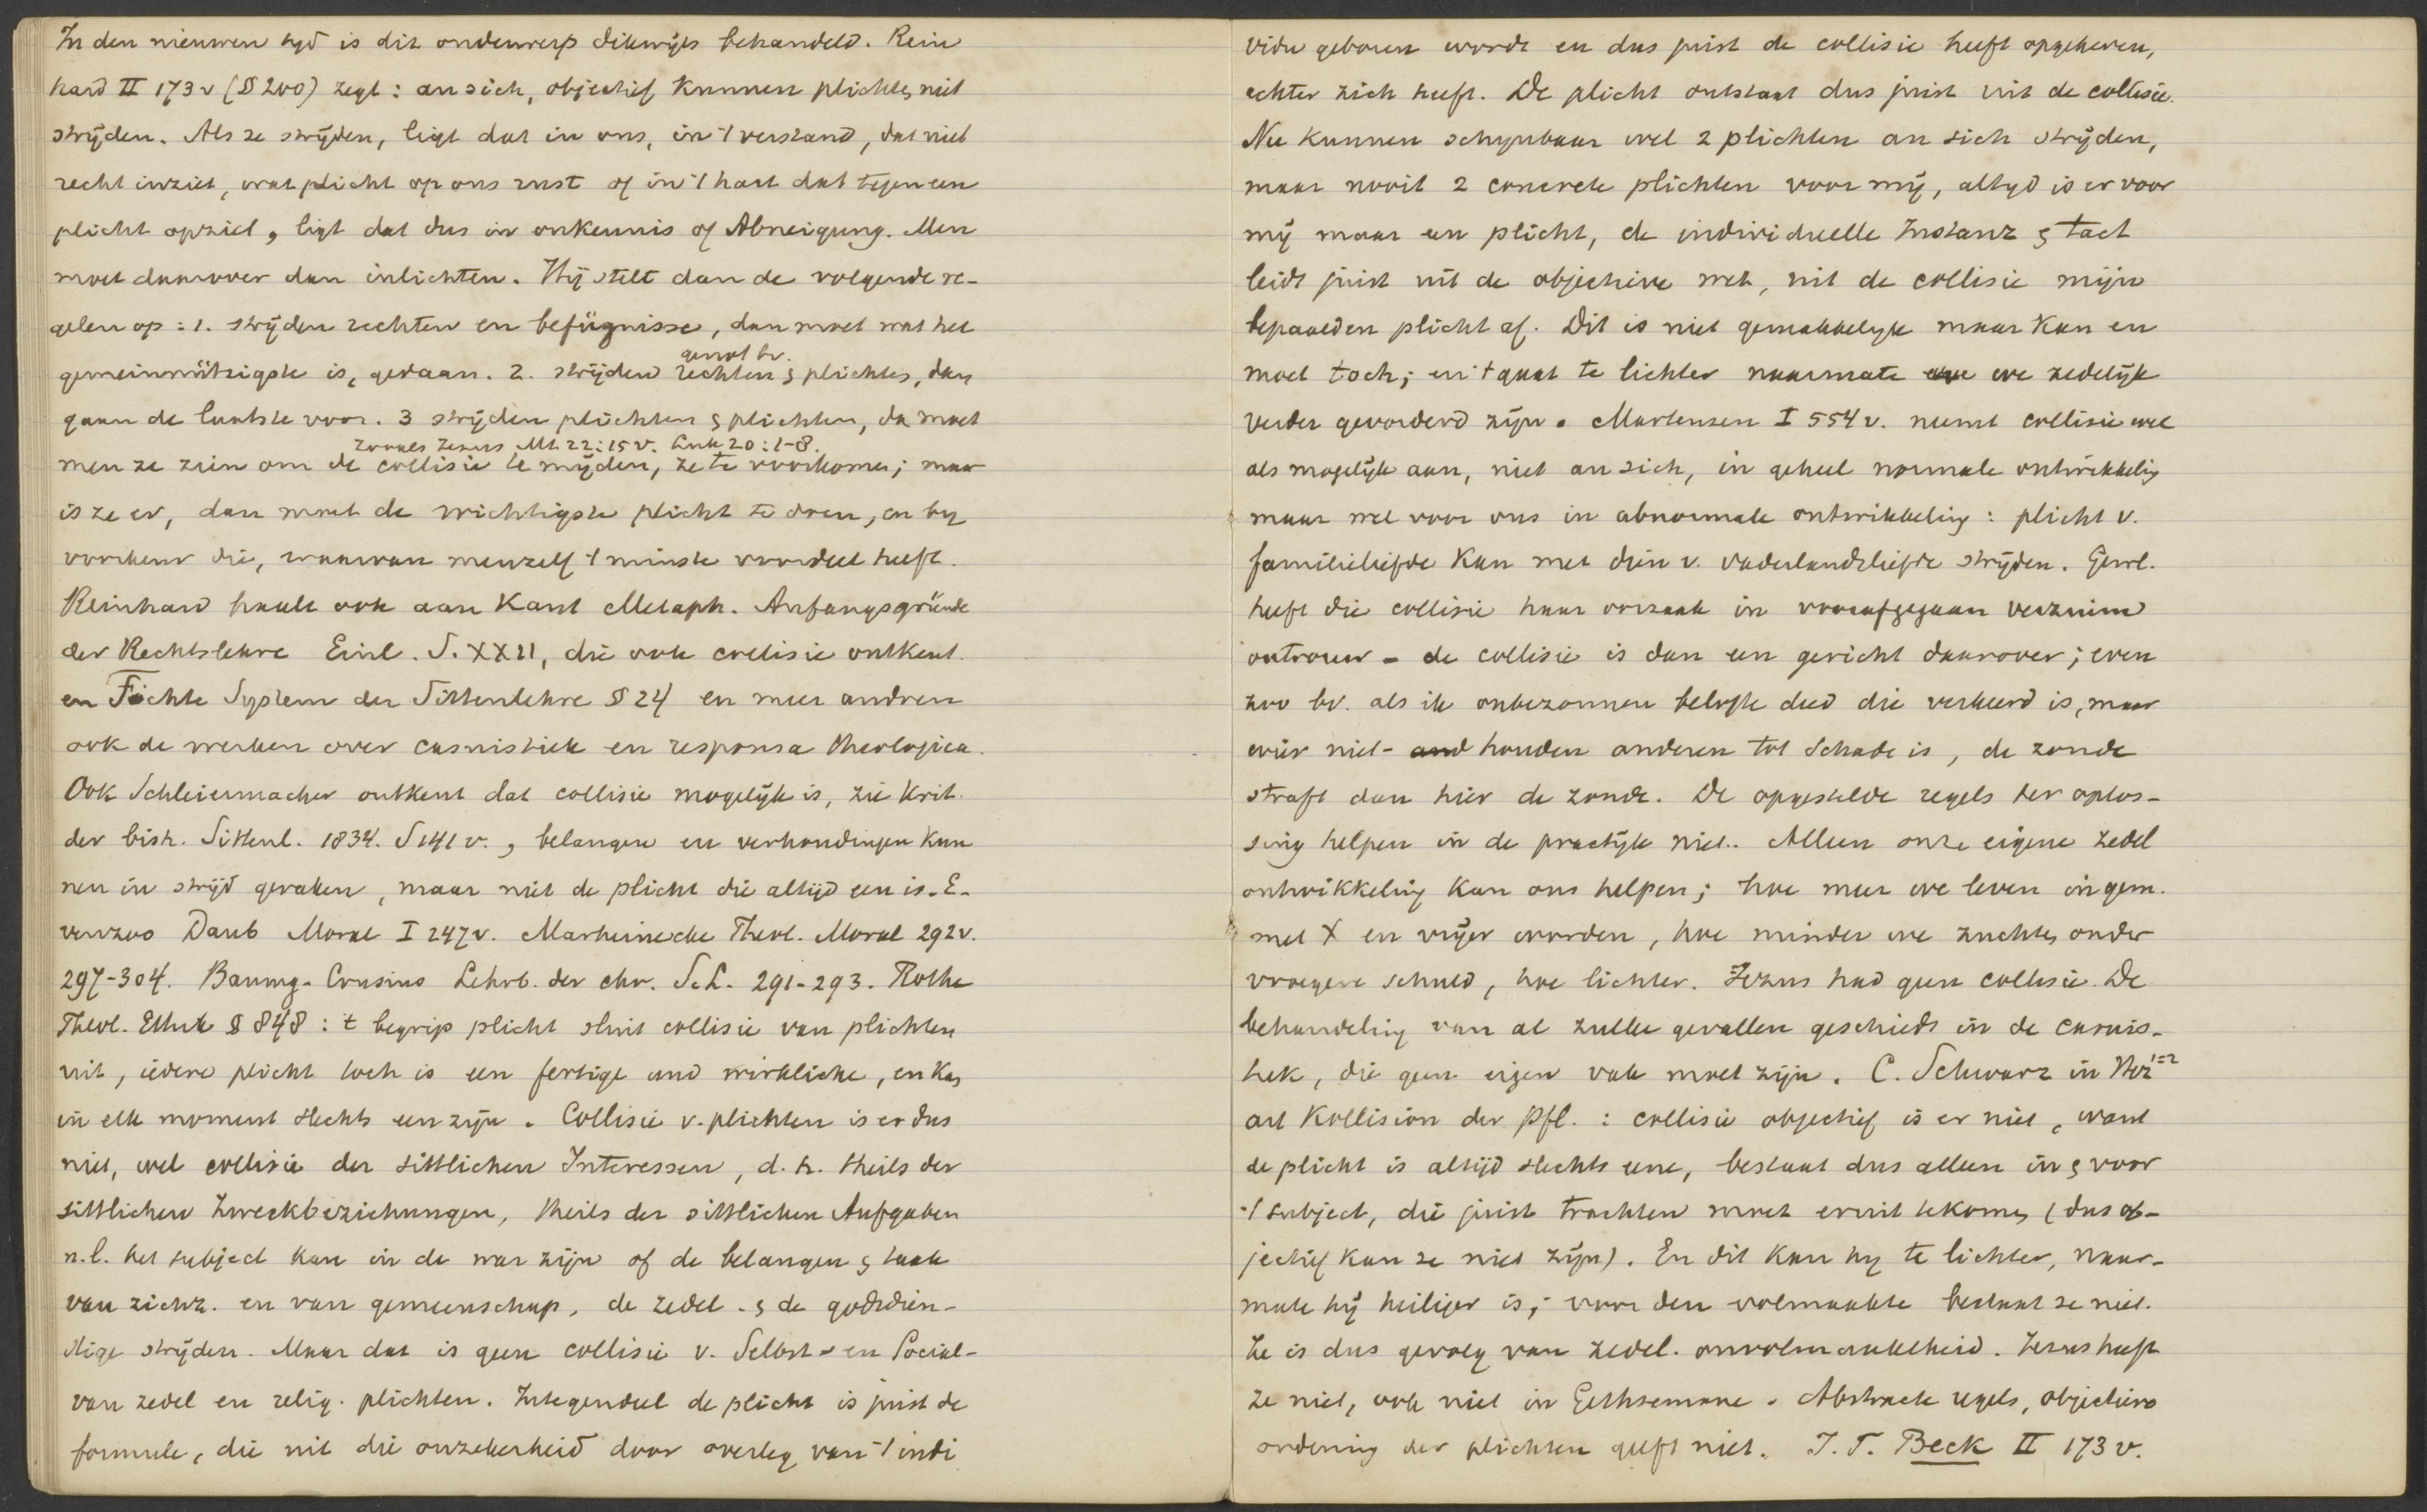 In den nieuwen tyd is dit onderwerp dikwijls behandeld. Rein
hard II 173 v (§ 200) zegt: an sich, objectief kunnen plichten niet
strijden. Als ze strijden, ligt dat in ons, in 't verstand, dat niet
recht inziet, wat plicht op ons rust of in 't hart dat tegen een
plicht opziet, ligt dat dus in onkennis of Abneigung. Men
moet daarover dan inlichten. Hij stelt dan de volgende re-
gelen op: 1. strijden rechten en befügnisse, dan moet wat het
gemeinnützigste is, gedaan. 2. strijden rechten & plichten, dan
genot bv.
gaan de laatste voor. 3 strijden plichten & plichten, dan moet
zooals Jezus Mt. 22:15 v. Luk 20:1-8.
men ze zien om de collisie te mijden, ze te voorkomen; maar
is ze er, dan moet de wichtigste plicht te doen, en by
voorkeur die, waarvan menzelf 't minste voordeel heeft.
Reinhard haalt ook aan Kant Metaph. Anfangsgründe
der Rechtslehre Einl. S. XXII, die ook collisie ontkent.
en Fichte System der Sittenlehre § 24 en meer andren
ook de werken over casuistiek en responsa theologica.
Ook Schleiermacher ontkent dat collisie mogelijk is, zie Krit.
der bish. Sittenl. 1834. S 141 v., belangen en verhoudingen kun
nen in strijd geraken, maar niet de plicht die altijd een is. E-
venzoo Daub Moral I 247 v. Marheinecke Theol. Moral 292 v.
297-304. Baumg-Crusius Lehrb. der chr. S.L. 291-293. Rothe
Theol. Ethik § 848: 't begrip plicht sluit collisie van plichten
uit, iedere plicht toch is een fertige und wirkliche, en kan
in elk moment slechts een zijn. Collisie v. plichten is er dus
niet, wel collisie der sittlichen Interessen, d. h. theils der
sittlichen Zweckbeziehungen, theils der sittlichen Aufgaben
n.l. het subject kan in de war zijn of de belangen & taak
van zichz. en van gemeenschap, de zedel. & de godsdien-
stige strijden. Maar dat is geen collisie v. Selbst- en Social-
van zedel en relig. plichten. Integendeel de plicht is juist de
formule, die uit die onzekerheid door overleg van 't indi
vidu geboren wordt en dus juist de collisie heeft opgeheven,
achter zich heeft. De plicht ontstaat dus juist uit de collisie.
Nu kunnen schynbaar wel 2 plichten an sich strijden,
maar nooit 2 concrete plichten voor mij, altyd is er voor
mij maar een plicht, de individuelle Instanz & tact
leidt juist uit de objectieve wet, uit de collisie mijn
bepaalden plicht af. Dit is niet gemakkelyk maar kan en
moet toch; en 't gaat te lichter naarmate we zedelijk
verder gevorderd zijn. Martensen I 554 v. neemt collisie wel
als mogelijk aan, niet an sich, in geheel normale ontwikkeling
maar wel voor ons in abnormale ontwikkeling: plicht v.
familieliefde kan met dien v. vaderlandsliefde strijden. Gew.
heeft die collisie haar oorzaak in voorafgegaan verzuim
ontrouw - de collisie is dan een gericht daarover; even
zoo bv. als ik onbezonnen belofte deed die verkeerd is, maar
wier niet- houden anderen tot schade is, de zonde
straft dan hier de zonde. De opgestelde regels ter oplos-
sing helpen in de practijk niet. Alleen onze eigene zedel
ontwikkeling kan ons helpen; hoe meer we leven in gem.
met X en vrijer worden, hoe minder we zuchten onder
vroegere schuld, hoe lichter. Jezus had geen collisie. De
behandeling van al zulke gevallen geschiedt in de casuis-
tiek, die geen eigen vak moet zijn. C. Schwarz in Herz 1=2
art Kollision der Pfl.: collisie objectief is er niet, want
de plicht is altijd slechts eene, bestaat dus alleen in & voor
't subject, die juist trachten moet eruit te komen (dus ob-
jectief kan ze niet zijn). En dit kan hy te lichter, naar-
mate hij heiliger is; voor den volmaakte bestaat ze niet.
Ze is dus gevolg van zedel. onvolmaaktheid. Jezus heeft
ze niet, ook niet in Gethsemane. Abstracte regels, objectieve
ordening der plichten geeft niet. J. T. Beck II 173 v.